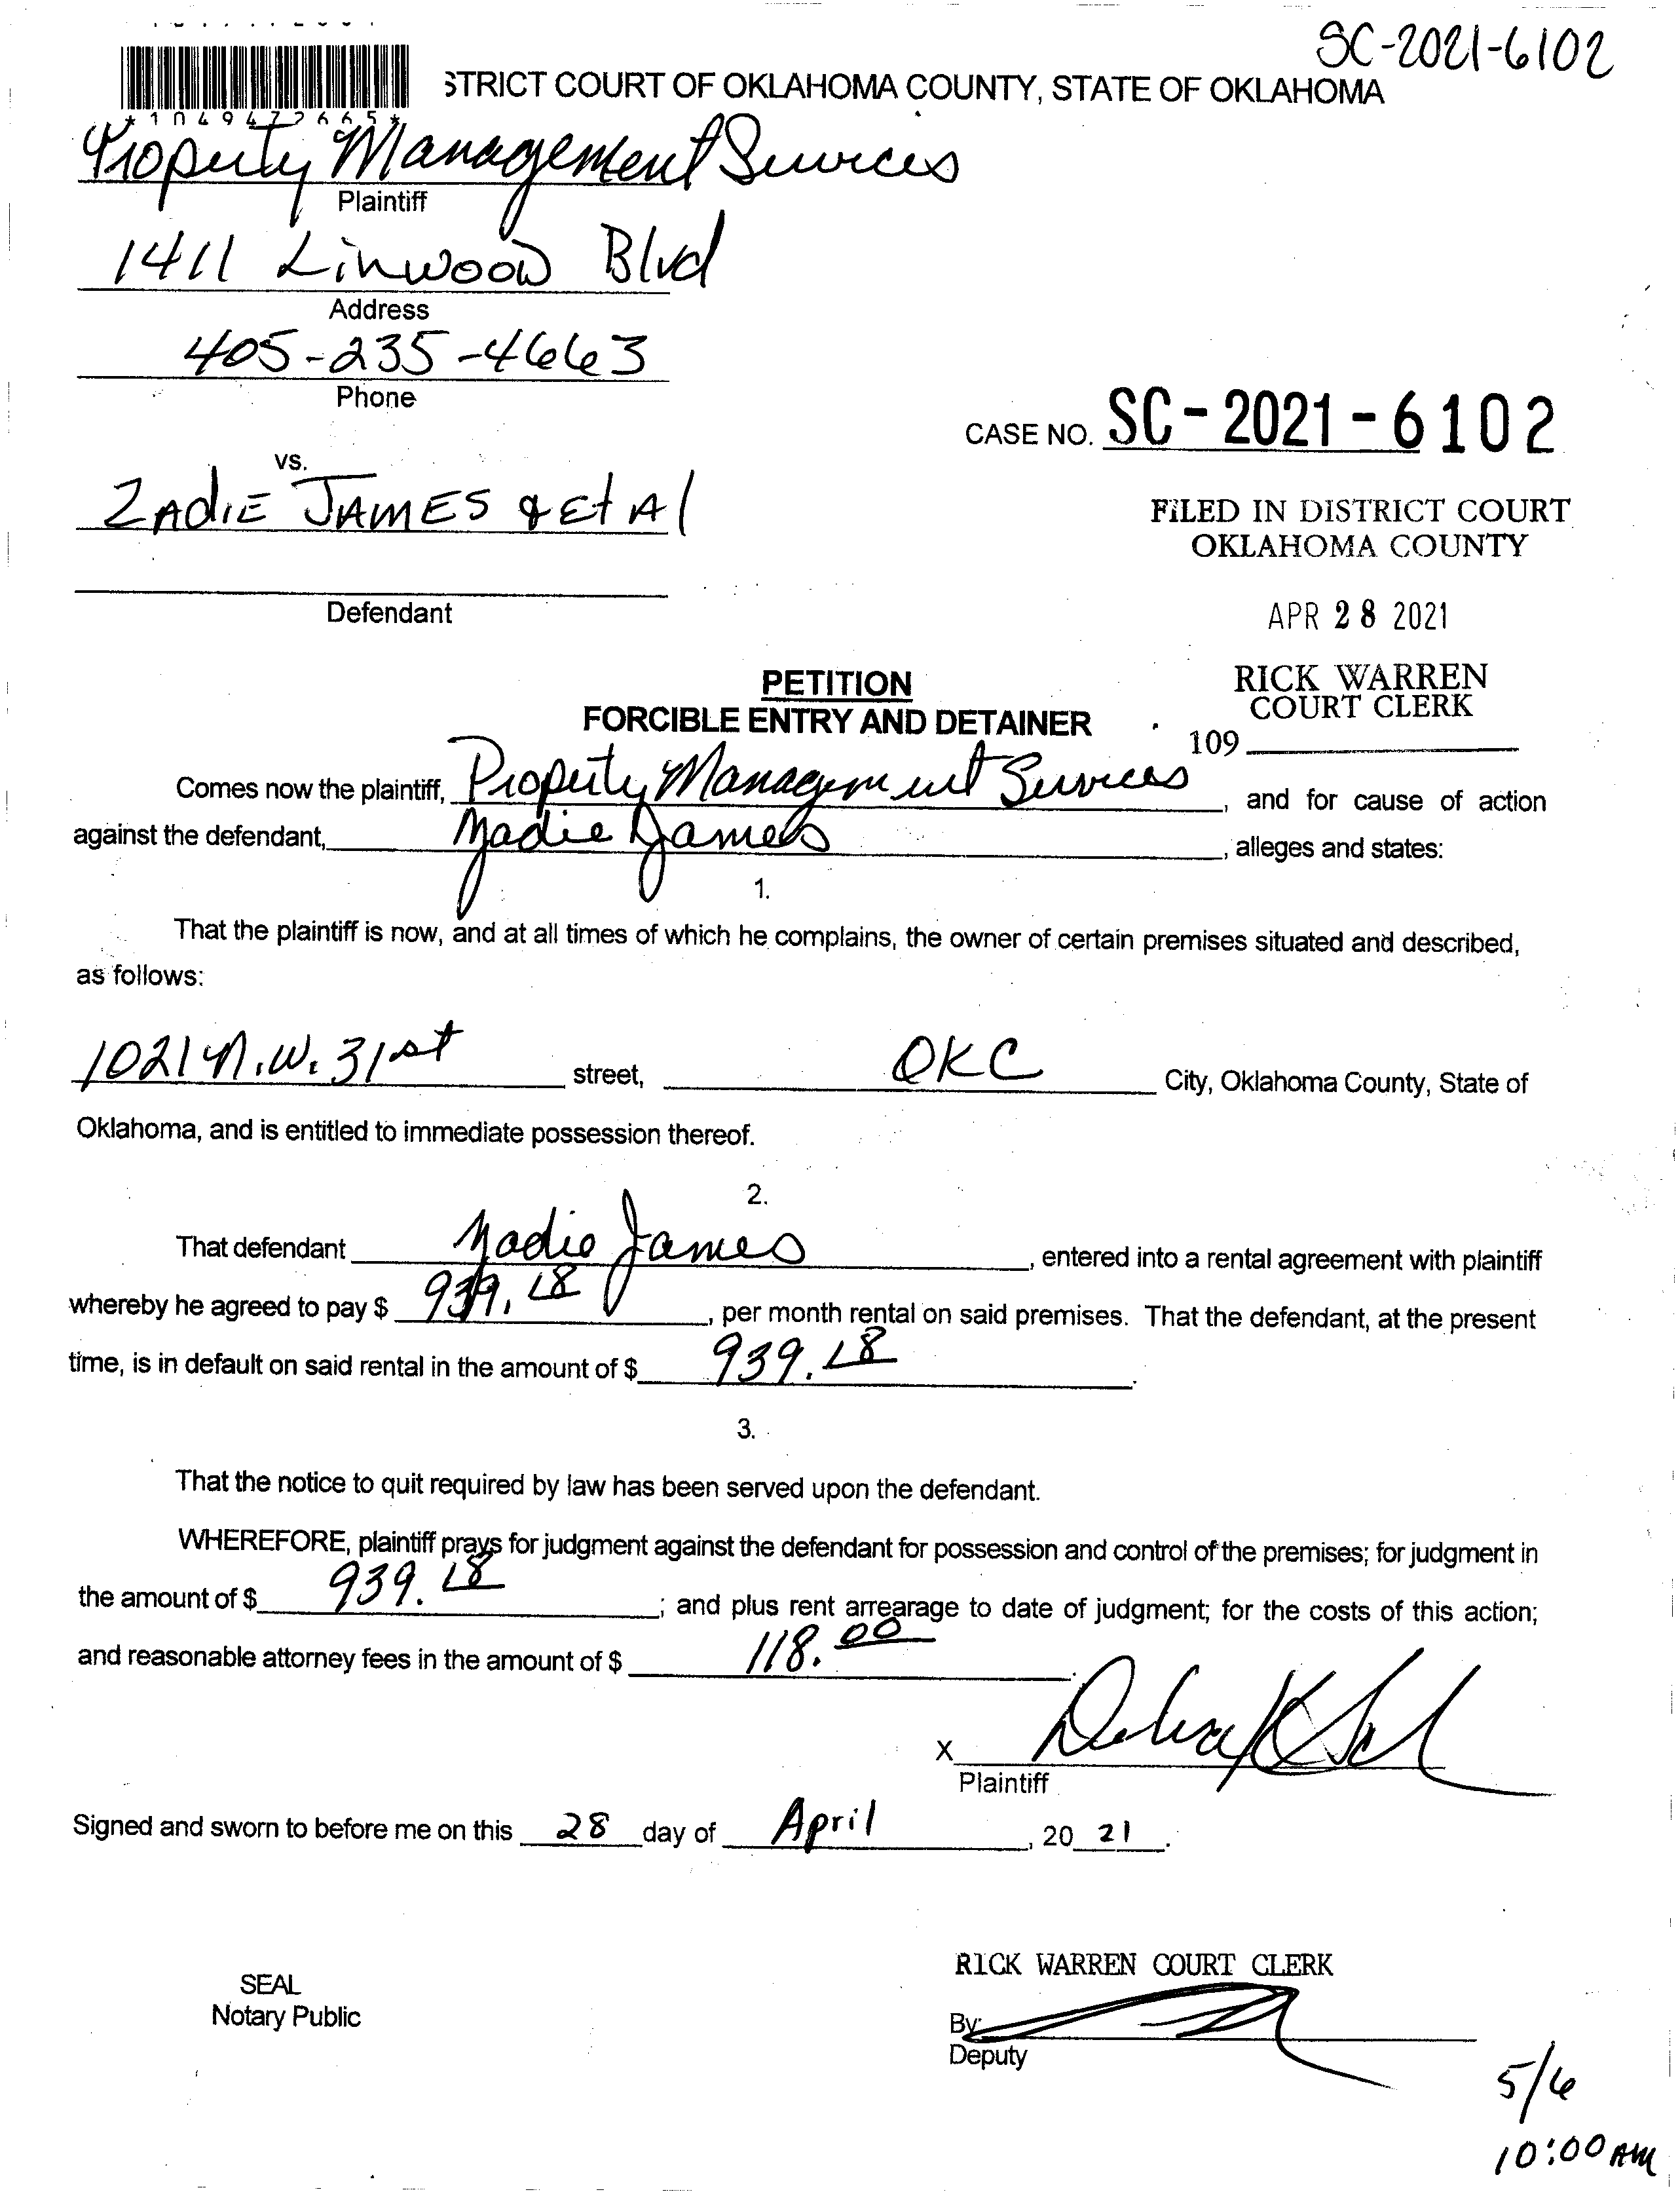 SC-2021-6102
STRICT COURT OF OKLAHOMA COUNTY, STATE OF OKLAHOMA
*1049472665*
Property Management Services
Plaintiff
1411 Linwood Blvd
Address
405-235-4663
Phone
CASE NO. SC-2021-6102
vs.
ZAdiE JAMES & Et Al
FILED IN DISTRICT COURT
OKLAHOMA COUNTY
Defendant
APR 28 2021
PETITION
FORCIBLE ENTRY AND DETAINER
RICK WARREN
COURT CLERK
109
Comes now the plaintiff, Property Management Services, and for cause of action
against the defendant, Zadie James, alleges and states:
1.
That the plaintiff is now, and at all times of which he complains, the owner of certain premises situated and described,
as follows:
1021 N.W. 31st street, OKC City, Oklahoma County, State of
Oklahoma, and is entitled to immediate possession thereof.
2.
That defendant Zadie James, entered into a rental agreement with plaintiff
whereby he agreed to pay $ 939.18, per month rental on said premises. That the defendant, at the present
time, is in default on said rental in the amount of $ 939.18.
3.
That the notice to quit required by law has been served upon the defendant.
WHEREFORE, plaintiff prays for judgment against the defendant for possession and control of the premises; for judgment in
the amount of $ 939.18; and plus rent arrearage to date of judgment; for the costs of this action;
and reasonable attorney fees in the amount of $ 118.00.
X
Plaintiff
Signed and sworn to before me on this 28 day of April, 20 21.
RICK WARREN COURT CLERK
SEAL
Notary Public
By:
Deputy
5/6
10:00 AM